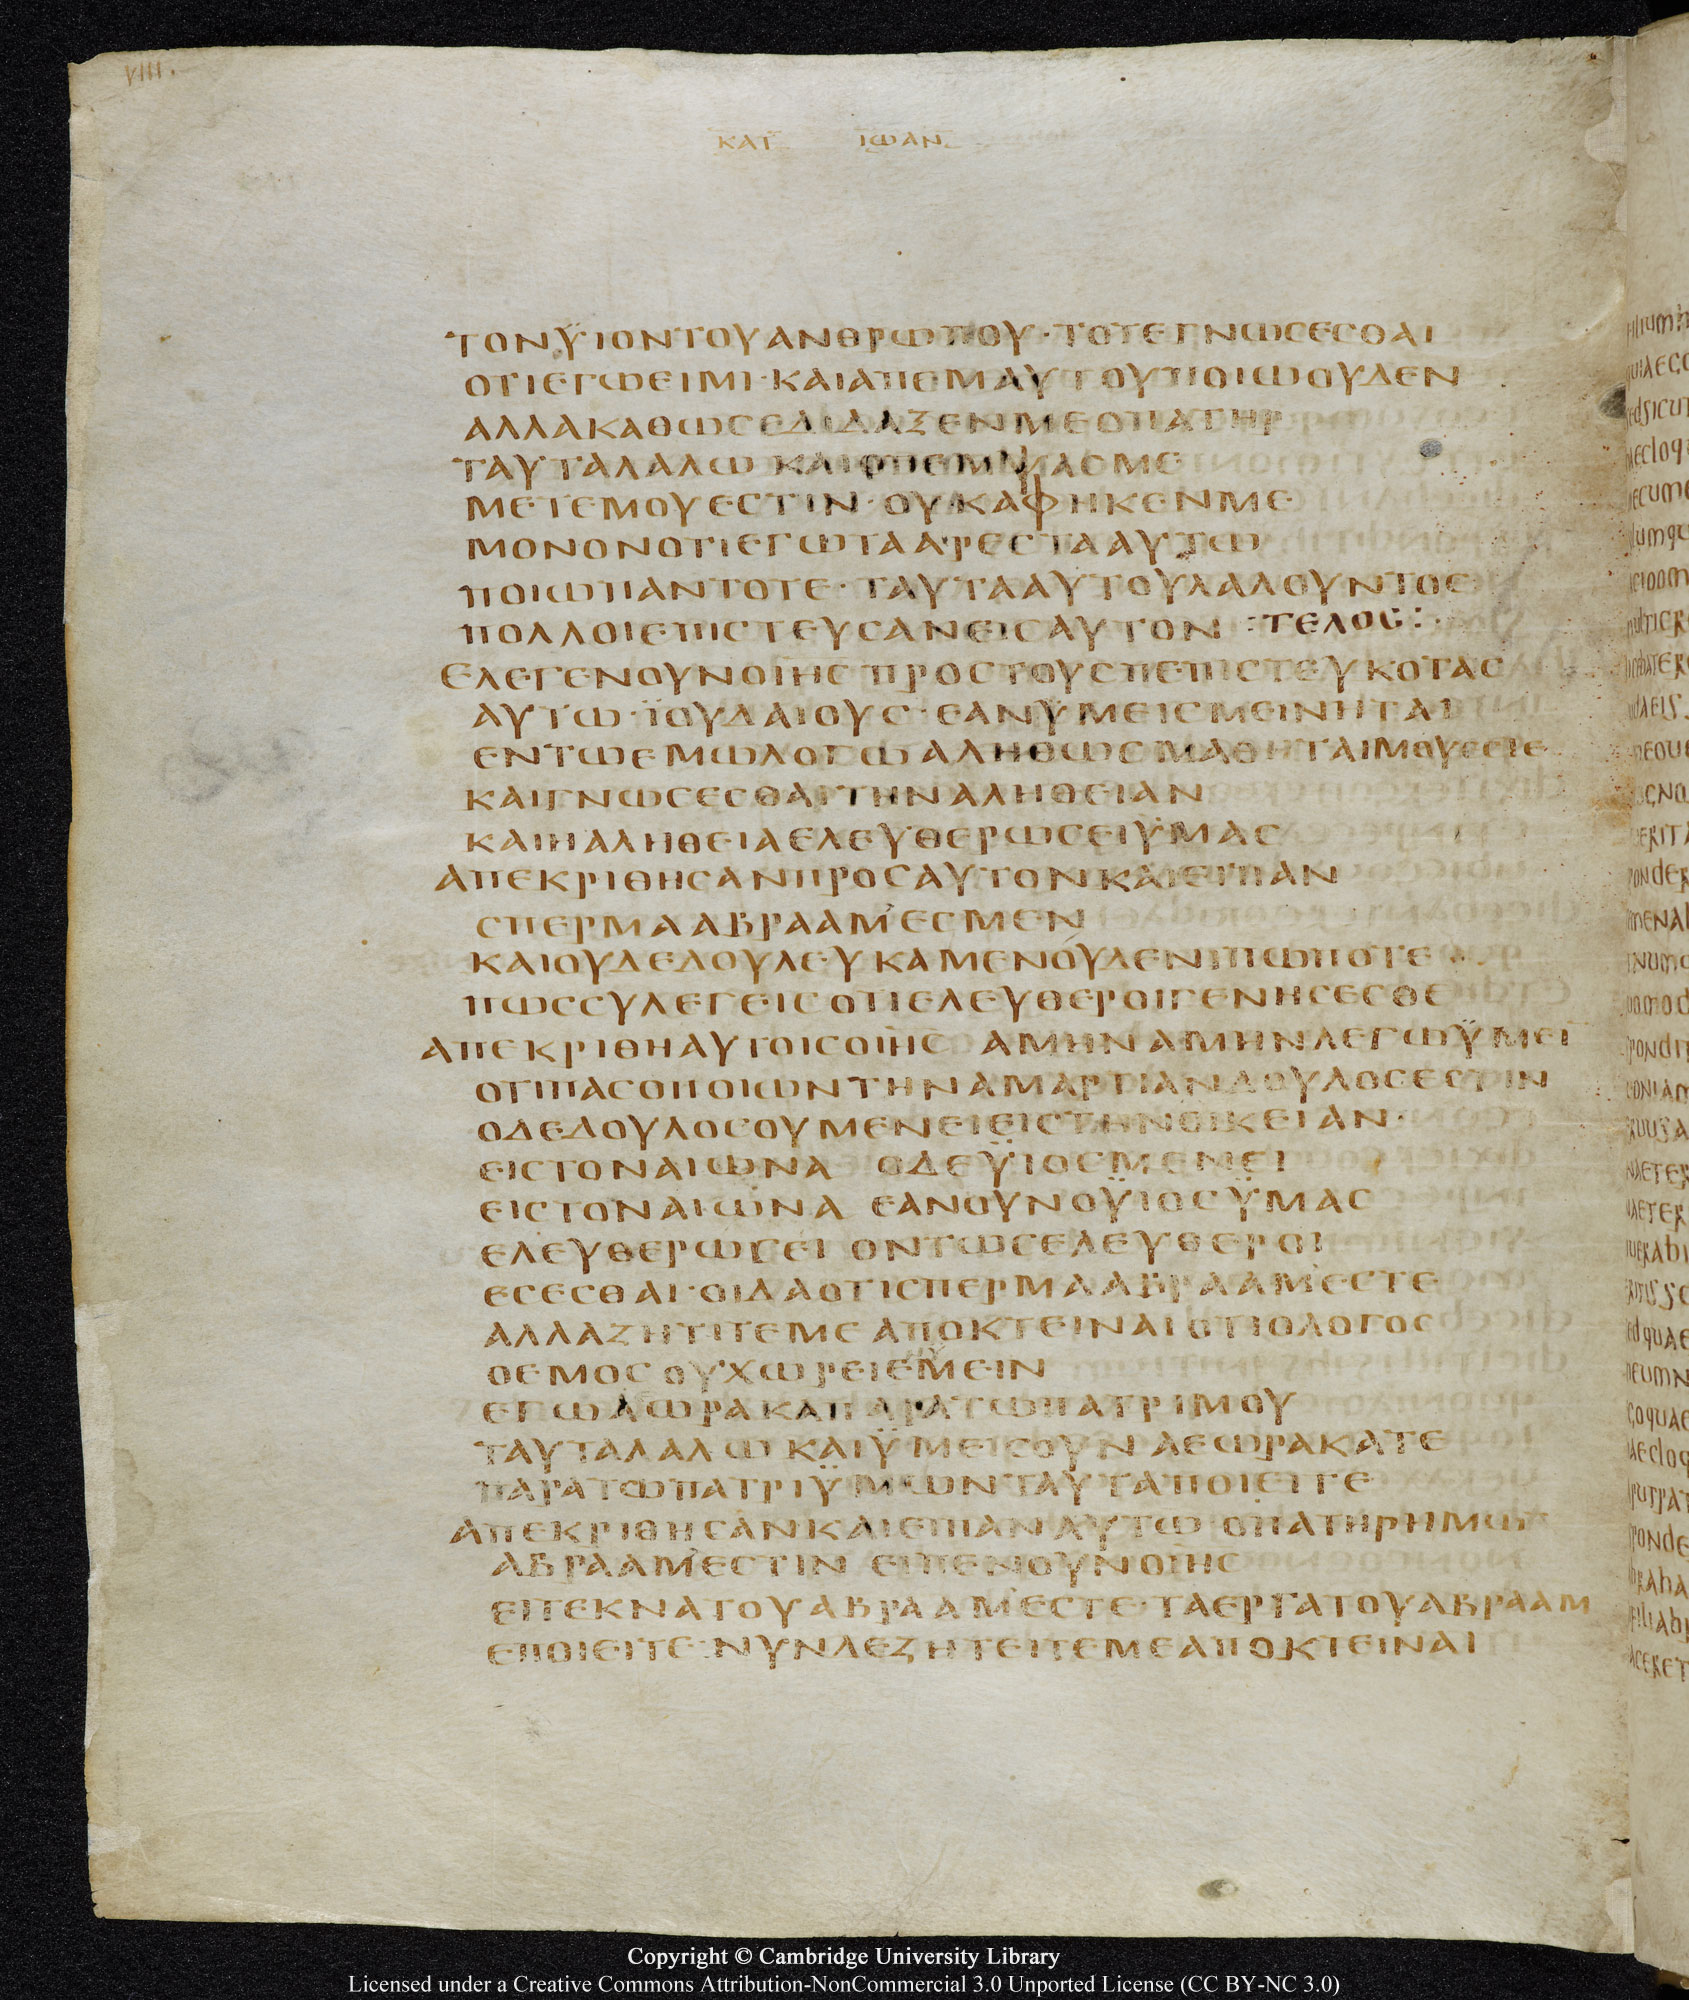 VIII.
ΚΑΤ ΙΩΑΝ
ΤΟΝΫΙΟΝΤΟΥΑΝΘΡΩΠΟΥ·ΤΟΤΕΓΝΩϹΕϹΘΑΙ
ΟΤΙΕΓΩΕΙΜΙ·ΚΑΙΑΠΕΜΑΥΤΟΥΠΟΙΩΟΥΔΕΝ
ΑΛΛΑΚΑΘΩϹΕΔΙΔΑΞΕΝΜΕΟΠΑΤΗΡ
ΤΑΥΤΑΛΑΛΩ ΚΑΙΟΠΕΜΨΑϹΜΕ
ΜΕΤΕΜΟΥΕϹΤΙΝ·ΟΥΚΑΦΗΚΕΝΜΕ
ΜΟΝΟΝΟΤΙΕΓΩΤΑΑΡΕϹΤΑΑΥΤΩ
ΠΟΙΩΠΑΝΤΟΤΕ·ΤΑΥΤΑΑΥΤΟΥΛΑΛΟΥΝΤΟϹ
ΠΟΛΛΟΙΕΠΙϹΤΕΥϹΑΝΕΙϹΑΥΤΟΝ :ΤΕΛΟϹ:·
ΕΛΕΓΕΝΟΥΝΟΙΗϹ ΠΡΟϹΤΟΥϹΠΕΠΙϹΤΕΥΚΟΤΑϹ
ΑΥΤΩ·ΪΟΥΔΑΙΟΥϹ·ΕΑΝΫΜΕΙϹΜΕΙΝΗΤΑΙ
ΕΝΤΩΕΜΩΛΟΓΩ ΑΛΗΘΩϹΜΑΘΗΤΑΙΜΟΥΕϹΤΕ
ΚΑΙΓΝΩϹΕϹΘΑΙΤΗΝΑΛΗΘΕΙΑΝ
ΚΑΙΗΑΛΗΘΕΙΑΕΛΕΥΘΕΡΩϹΕΙΫΜΑϹ
ΑΠΕΚΡΙΘΗϹΑΝΠΡΟϹΑΥΤΟΝΚΑΙΕΙΠΑΝ
ϹΠΕΡΜΑΑΒΡΑΑΜ'ΕϹΜΕΝ
ΚΑΙΟΥΔΕΔΟΥΛΕΥΚΑΜΕΝΟΥΔΕΝΙΠΩΠΟΤΕ
ΠΩϹϹΥΛΕΓΕΙϹΟΤΙΕΛΕΥΘΕΡΟΙΓΕΝΗϹΕϹΘΕ
ΑΠΕΚΡΙΘΗΑΥΤΟΙϹΟΙΗϹ ΑΜΗΝΑΜΗΝΛΕΓΩΫΜΕΙ
ΟΤΙΠΑϹΟΠΟΙΩΝΤΗΝΑΜΑΡΤΙΑΝΔΟΥΛΟϹΕϹΤΙΝ
ΟΔΕΔΟΥΛΟϹΟΥΜΕΝΕΙΕΙϹΤΗΝΟΙΚΕΙΑΝ·
ΕΙϹΤΟΝΑΙΩΝΑ ΟΔΕΫΙΟϹΜΕΝΕΙ
ΕΙϹΤΟΝΑΙΩΝΑ ΕΑΝΟΥΝΟΫΙΟϹΫΜΑϹ
ΕΛΕΥΘΕΡΩϹΕΙ ΟΝΤΩϹΕΛΕΥΘΕΡΟΙ
ΕϹΕϹΘΑΙ·ΟΙΔΑΟΤΙϹΠΕΡΜΑΑΒΡΑΑΜ'ΕϹΤΕ
ΑΛΛΑΖΗΤΙΤΕΜΕ ΑΠΟΚΤΕΙΝΑΙΟΤΙΟΛΟΓΟϹ
ΟΕΜΟϹ ΟΥΧΩΡΕΙΕΜΕΙΝ
ΕΓΩΑΩΡΑΚΑΠΑΡΑΤΩΠΑΤΡΙΜΟΥ
ΤΑΥΤΑΛΑΛΩ ΚΑΙΫΜΕΙϹΟΥΝ ΑΕΩΡΑΚΑΤΕ
ΠΑΡΑΤΩΠΑΤΡΙΫΜΩΝΤΑΥΤΑΠΟΙΕΙΤΕ
ΑΠΕΚΡΙΘΗϹΑΝΚΑΙΕΙΠΑΝΑΥΤΩ·ΟΠΑΤΗΡΗΜΩΝ
ΑΒΡΑΑΜ'ΕϹΤΙΝ ΕΙΠΕΝΟΥΝΟΙΗϹ
ΕΙΤΕΚΝΑΤΟΥΑΒΡΑΑΜ'ΕϹΤΕ·ΤΑΕΡΓΑΤΟΥΑΒΡΑΑΜ
ΕΠΟΙΕΙΤΕ·ΝΥΝΔΕΖΗΤΕΙΤΕΜΕΑΠΟΚΤΕΙΝΑΙ
Copyright © Cambridge University Library
Licensed under a Creative Commons Attribution-NonCommercial 3.0 Unported License (CC BY-NC 3.0)